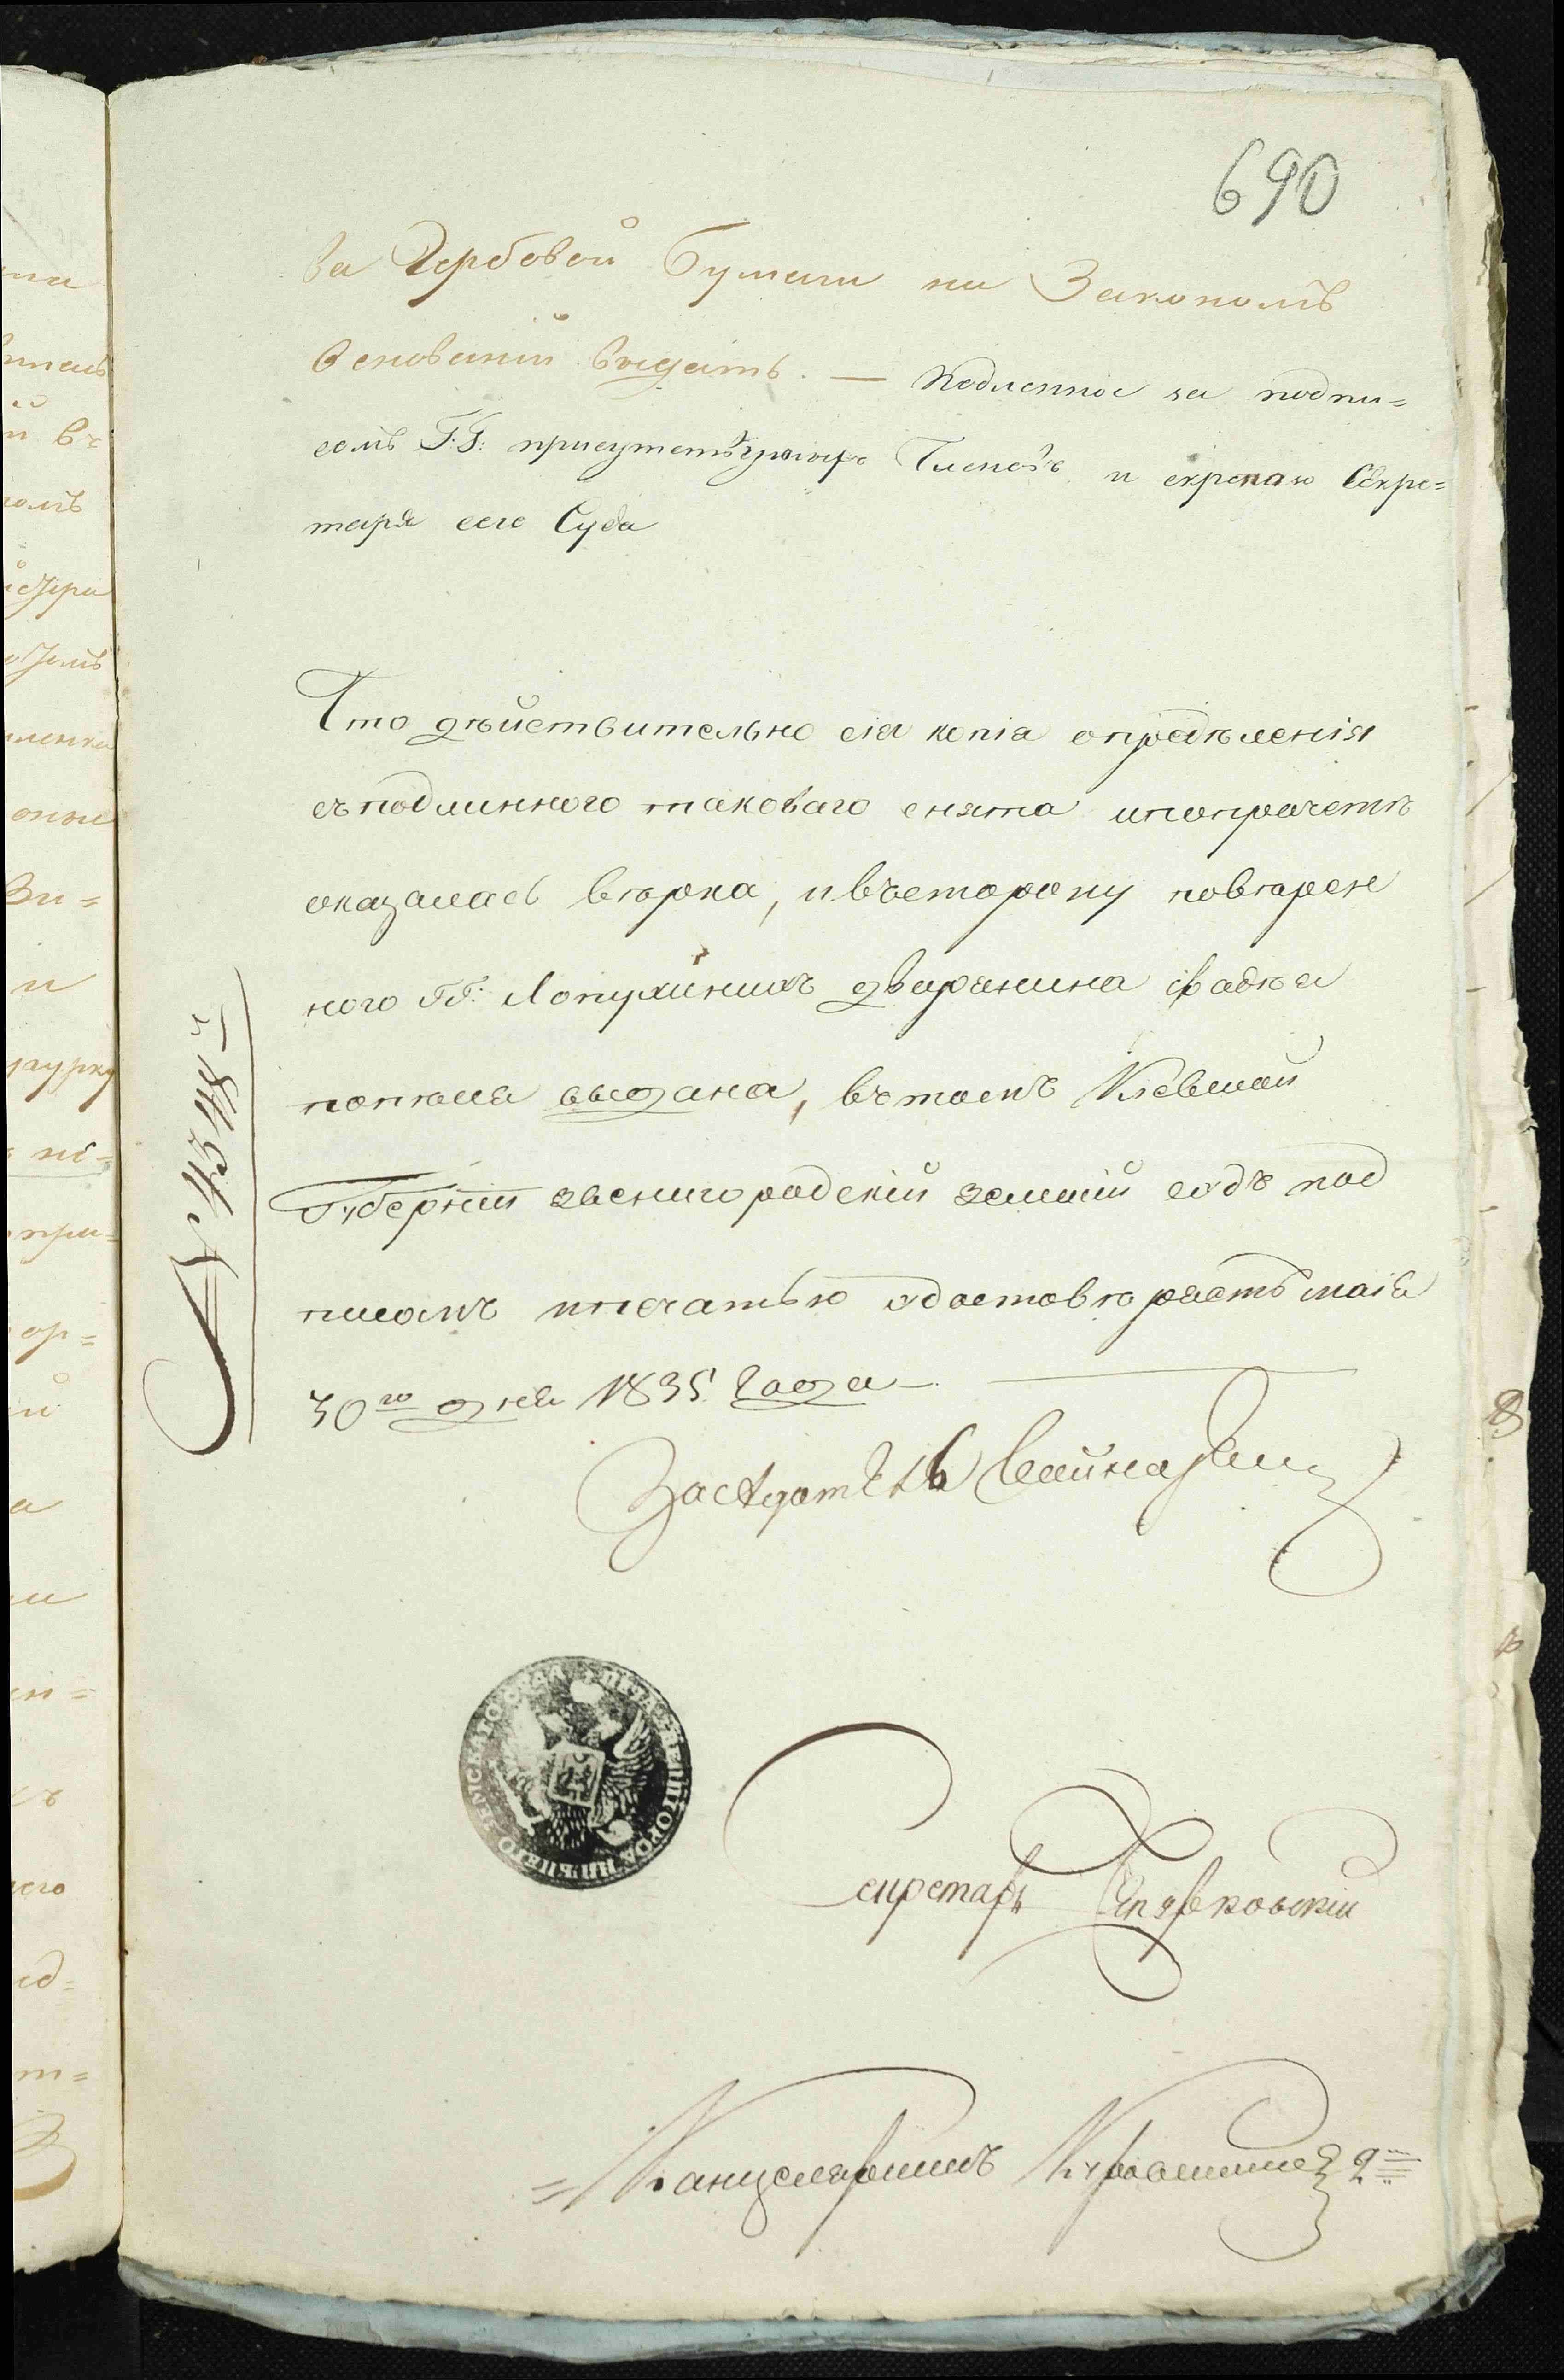 690
ва Гербовой бумаги на Закономъ
Основаніи выдать. — Подленное за подпи=
сомъ Г.Г: присутствующихъ Членовъ и скрепаю Секре=
таря сего Суда
Что дѣйствительно сія копіа опредѣленія
съ подлинного таковаго снята ипопрочетѣ
оказалась вѣрна, ивъсторону повѣрен
ного ГГ: Лопухиныхъ дварянина Фадѣа
выдана, въ томъ Кіевской
Губерніи звенигородскій земскій судъ под
писомъ ипечатью удостовѣряетъ маія
30го дня 1835 года
№ 4548й
Засѣдатель
Секретарь
Канцеляристъ